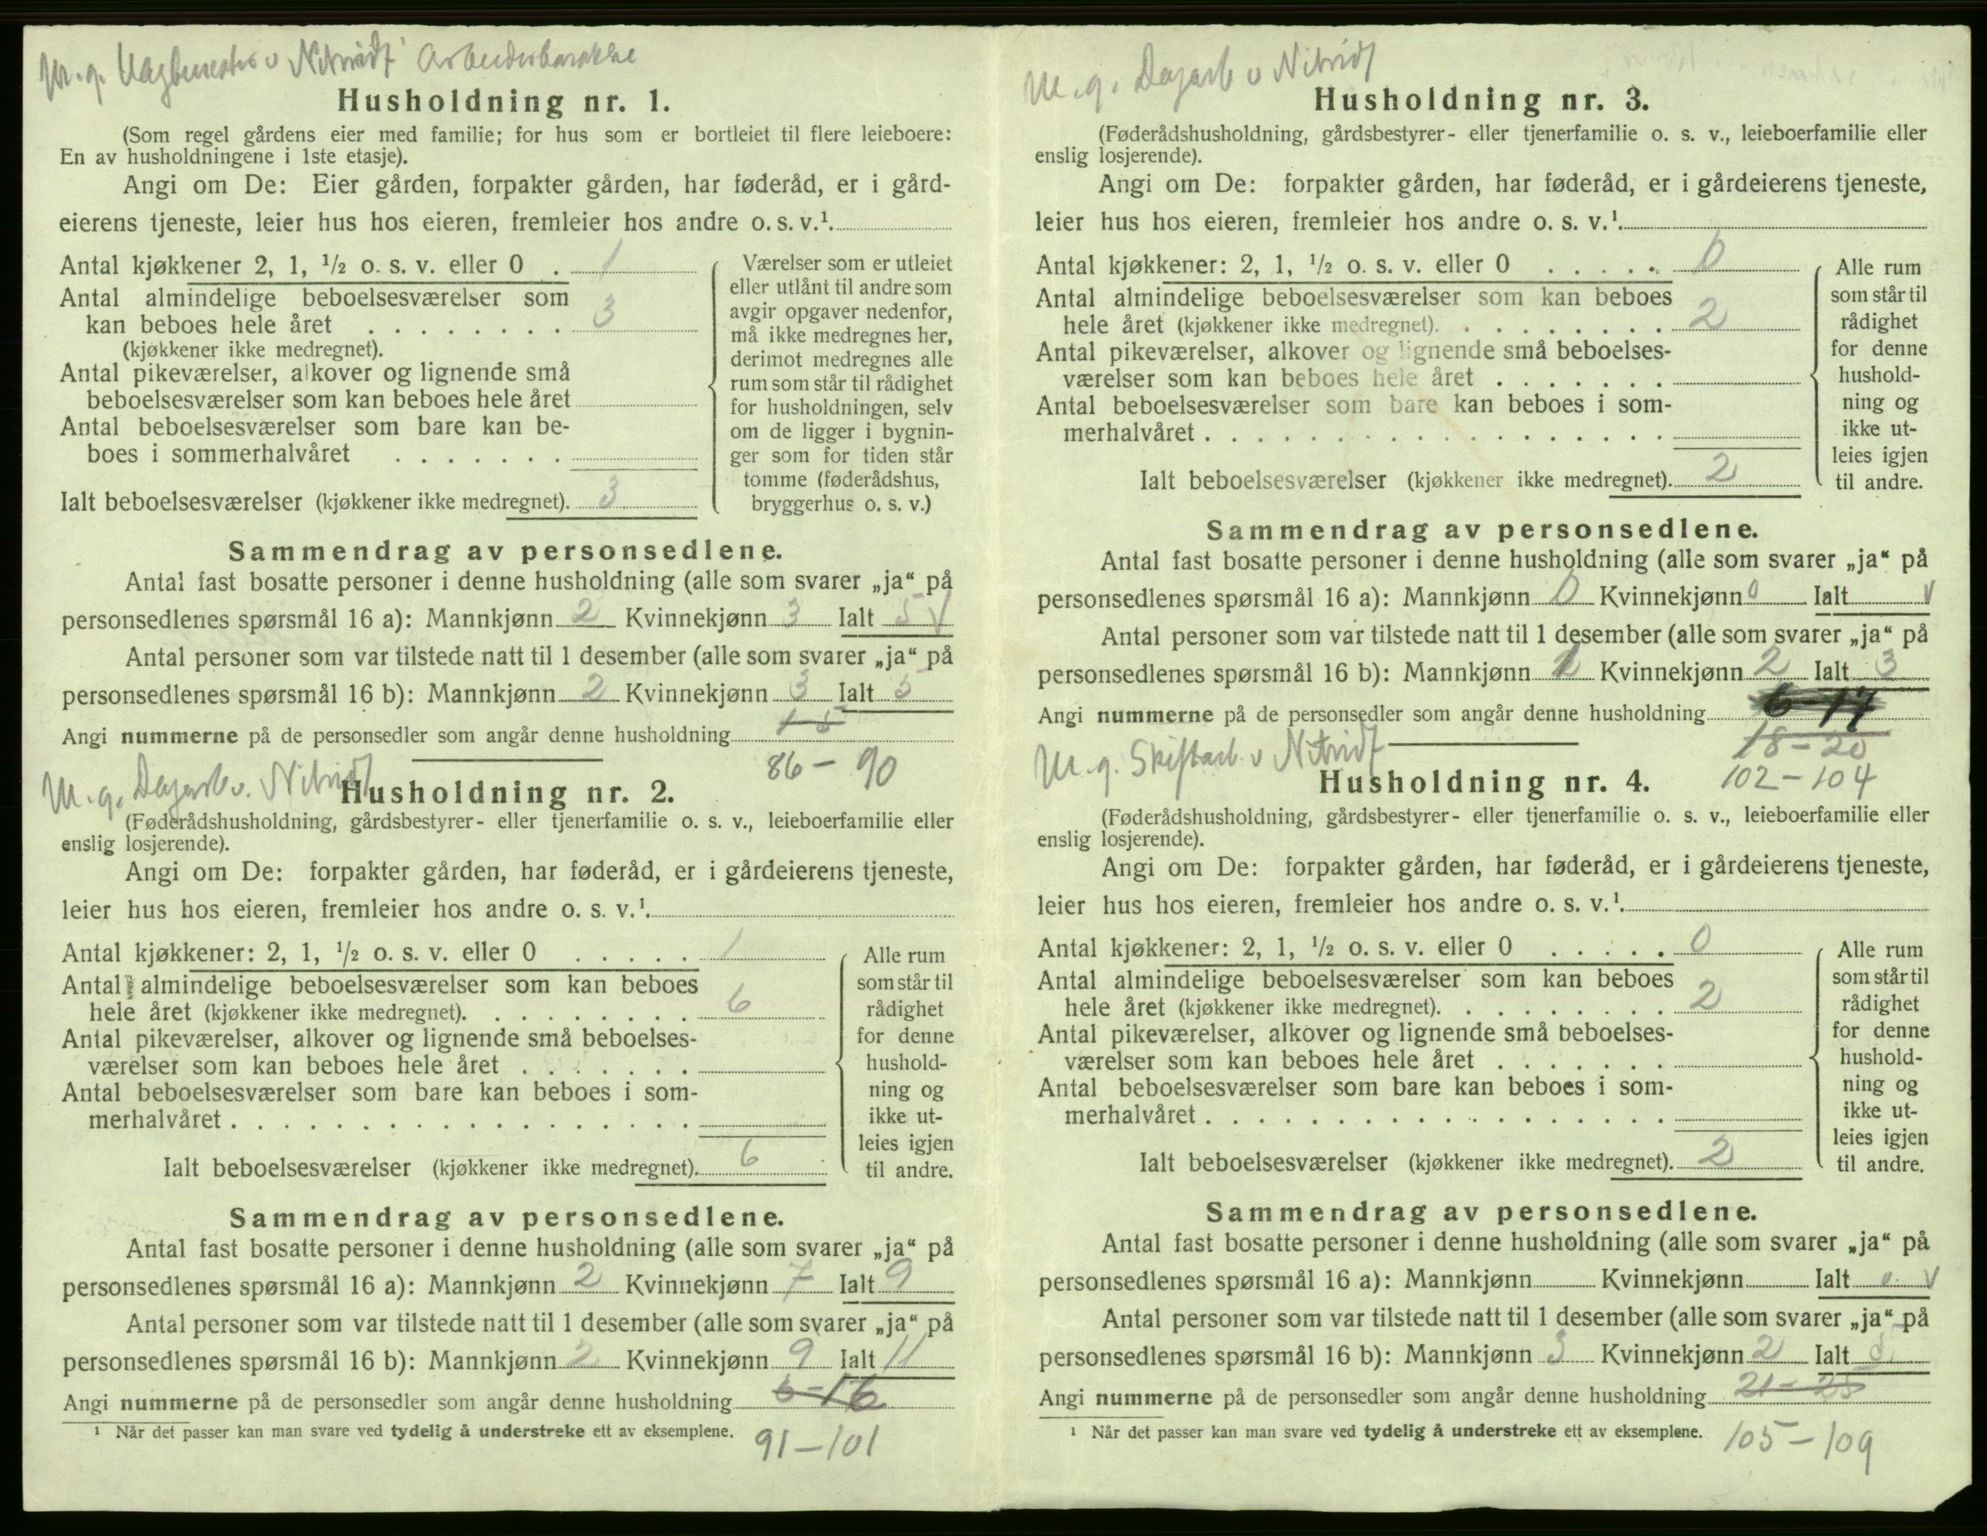 M. g. v Nitridf Arbeiderbarakke
Husholdning nr. 1.
(Som regel gårdens eier med familie; for hus som er bortleiet til flere leieboere:
En av husholdningene i 1ste etasje).
Angi om De: Eier gården, forpakter gården, har føderåd, er i gård-
eierens tjeneste, leier hus hos eieren, fremleier hos andre o. s. v.¹.
Antal kjøkkener 2, 1, ½ o. s. v. eller 0 . 1
Antal almindelige beboelsesværelser som
kan beboes hele året . . . . . . . . 3
(kjøkkener ikke medregnet).
Antal pikeværelser, alkover og lignende små
beboelsesværelser som kan beboes hele året
Antal beboelsesværelser som bare kan be-
boes i sommerhalvåret . . . . . . .
Ialt beboelsesværelser (kjøkkener ikke medregnet). 3
Værelser som er utleiet
eller utlånt til andre som
avgir opgaver nedenfor,
må ikke medregnes her,
derimot medregnes alle
rum som står til rådighet
for husholdningen, selv
om de ligger i bygnin-
ger som for tiden står
tomme (føderådshus,
bryggerhus o. s. v.)
Sammendrag av personsedlene.
Antal fast bosatte personer i denne husholdning (alle som svarer „ja“ på
personsedlenes spørsmål 16 a): Mannkjønn 2 Kvinnekjønn 3 Ialt 5 √
Antal personer som var tilstede natt til 1 desember (alle som svarer „ja“ på
personsedlenes spørsmål 16 b): Mannkjønn 2 Kvinnekjønn 3 Ialt 5
1-5
Angi nummerne på de personsedler som angår denne husholdning
86 - 90
M. g. Dagarb v. Nitridf
Husholdning nr. 2.
(Føderådshusholdning, gårdsbestyrer- eller tjenerfamilie o. s. v., leieboerfamilie eller
enslig losjerende).
Angi om De: forpakter gården, har føderåd, er i gårdeierens tjeneste,
leier hus hos eieren, fremleier hos andre o. s. v.¹.
Antal kjøkkener: 2, 1, ½ o. s. v. eller 0 . . . . . 1
Antal almindelige beboelsesværelser som kan beboes
hele året (kjøkkener ikke medregnet). . . . . . . . . 6
Antal pikeværelser, alkover og lignende små beboelses-
værelser som kan beboes hele året . . . . . . .
Antal beboelsesværelser som bare kan beboes i som-
merhalvåret . . . . . . . . . . . . . . . . . .
Ialt beboelsesværelser (kjøkkener ikke medregnet). 6
Alle rum
som står til
rådighet
for denne
hushold-
ning og
ikke ut-
leies igjen
til andre.
Sammendrag av personsedlene.
Antal fast bosatte personer i denne husholdning (alle som svarer „ja“ på
personsedlenes spørsmål 16 a): Mannkjønn 2 Kvinnekjønn 7 Ialt 9
Antal personer som var tilstede natt til 1 desember (alle som svarer „ja“ på
personsedlenes spørsmål 16 b): Mannkjønn 2 Kvinnekjønn 9 Ialt 11
Angi nummerne på de personsedler som angår denne husholdning 6-16
¹ Når det passer kan man svare ved tydelig å understreke ett av eksemplene.
91 - 101
M. g. Dagarb v Nitridf
Husholdning nr. 3.
(Føderådshusholdning, gårdsbestyrer- eller tjenerfamilie o. s. v., leieboerfamilie eller
enslig losjerende).
Angi om De: forpakter gården, har føderåd, er i gårdeierens tjeneste,
leier hus hos eieren, fremleier hos andre o. s. v.¹.
Antal kjøkkener: 2, 1, ½ o. s. v. eller 0 . . . . . 0
Antal almindelige beboelsesværelser som kan beboes
hele året (kjøkkener ikke medregnet). . . . . . . . . 2
Antal pikeværelser, alkover og lignende små beboelses-
værelser som kan beboes hele året . . . . . . .
Antal beboelsesværelser som bare kan beboes i som-
merhalvåret . . . . . . . . . . . . . . . . . .
Ialt beboelsesværelser (kjøkkener ikke medregnet). 2
Alle rum
som står til
rådighet
for denne
hushold-
ning og
ikke ut-
leies igjen
til andre.
Sammendrag av personsedlene.
Antal fast bosatte personer i denne husholdning (alle som svarer „ja“ på
personsedlenes spørsmål 16 a): Mannkjønn 0 Kvinnekjønn 0 Ialt √
Antal personer som var tilstede natt til 1 desember (alle som svarer „ja“ på
personsedlenes spørsmål 16 b): Mannkjønn 1 Kvinnekjønn 2 Ialt 3
Angi nummerne på de personsedler som angår denne husholdning 6-17
18 - 20
102 - 104
M. g. Skiftarb. v Nitridf
Husholdning nr. 4.
(Føderådshusholdning, gårdsbestyrer- eller tjenerfamilie o. s. v., leieboerfamilie eller
enslig losjerende).
Angi om De: forpakter gården, har føderåd, er i gårdeierens tjeneste,
leier hus hos eieren, fremleier hos andre o. s. v.¹.
Antal kjøkkener: 2, 1, ½ o. s. v. eller 0 . . . . . 0
Antal almindelige beboelsesværelser som kan beboes
hele året (kjøkkener ikke medregnet). . . . . . . . . 2
Antal pikeværelser, alkover og lignende små beboelses-
værelser som kan beboes hele året . . . . . . .
Antal beboelsesværelser som bare kan beboes i som-
merhalvåret . . . . . . . . . . . . . . . . . .
Ialt beboelsesværelser (kjøkkener ikke medregnet). 2
Alle rum
som står til
rådighet
for denne
hushold-
ning og
ikke ut-
leies igjen
til andre.
Sammendrag av personsedlene.
Antal fast bosatte personer i denne husholdning (alle som svarer „ja“ på
personsedlenes spørsmål 16 a): Mannkjønn Kvinnekjønn Ialt 0 √
Antal personer som var tilstede natt til 1 desember (alle som svarer „ja“ på
personsedlenes spørsmål 16 b): Mannkjønn 3 Kvinnekjønn 2 Ialt 5
Angi nummerne på de personsedler som angår denne husholdning 21 - 25
¹ Når det passer kan man svare ved tydelig å understreke ett av eksemplene.
105 - 109